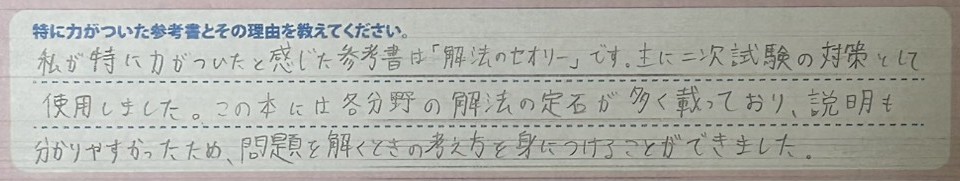 特に力がついた参考書とその理由を教えてください。
私が特に力がついたと感じた参考書は「解法のセオリー」です。主に二次試験の対策として
使用しました。この本には各分野の解法の定石が多く載っており、説明も
分かりやすかったため、問題を解くときの考え方を身につけることができました。